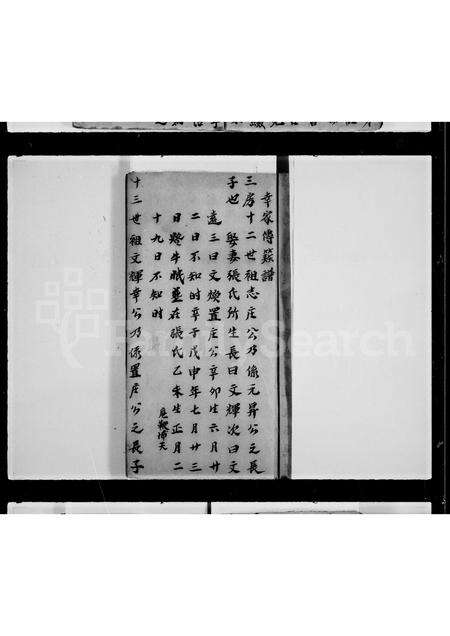 幸家傳蔟譜
三房十二世祖志庄公乃係元昇公之長
子也 娶妻張氏所生長曰文輝次曰文
遠三曰文煥置庄公辛卯生六月廿
二日不知時辛于戊申年七月廿三
日 在張氏乙未生正月二
十九日不知時
十三世祖文輝幸公乃係置庄公之長子
FamilySearch